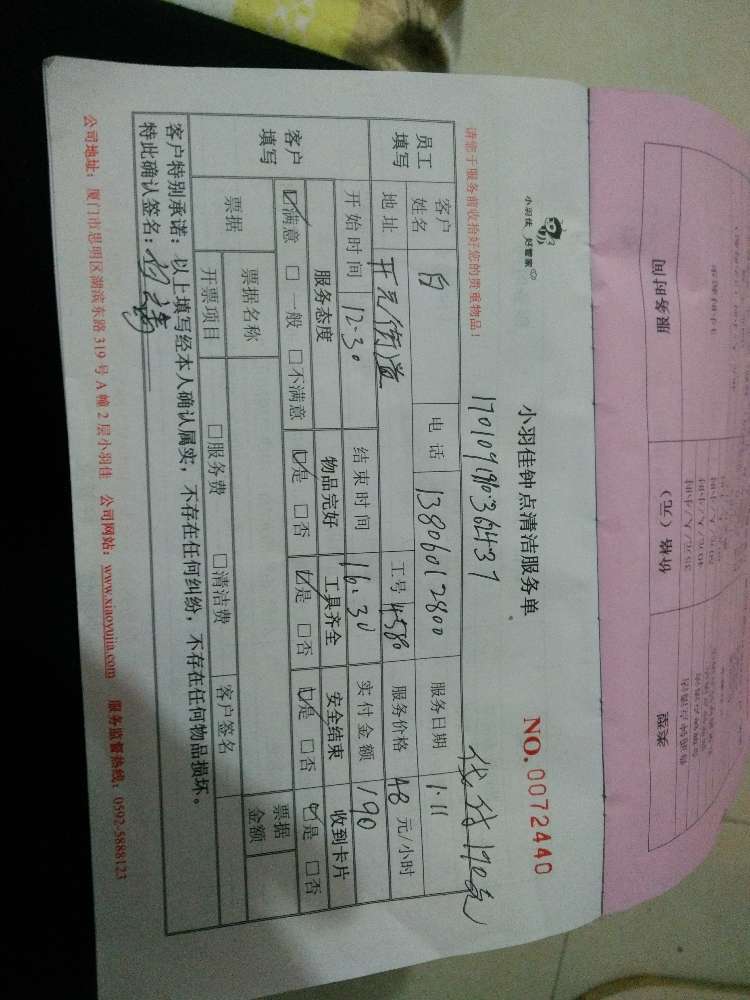 小羽佳 好管家
小羽佳钟点清洁服务单
NO.0072440
请您于服务前收拾好您的贵重物品！
员工填写
客户姓名 白 电话 13806012800 服务日期 1.11
地址 开元街道 工号 4580 服务价格 48 元/小时
客户填写
开始时间 12.30 结束时间 16.30 实付金额 190
服务态度 物品完好 工具齐全 安全结束 收到卡片
☑满意 □一般 □不满意 ☑是 □否 ☑是 □否 ☑是 □否 ☑是 □否
票据 票据名称 票据金额
开票项目 □服务费 □清洁费 客户签名
客户特别承诺：以上填写经本人确认属实，不存在任何纠纷，不存在任何物品损坏。
特此确认签名：
公司地址：厦门市思明区湖滨东路 319 号 A 幢 2 层小羽佳 公司网站：www.xiaoyujia.com 服务监督热线：0592-5888123
服务时间 价格（元）